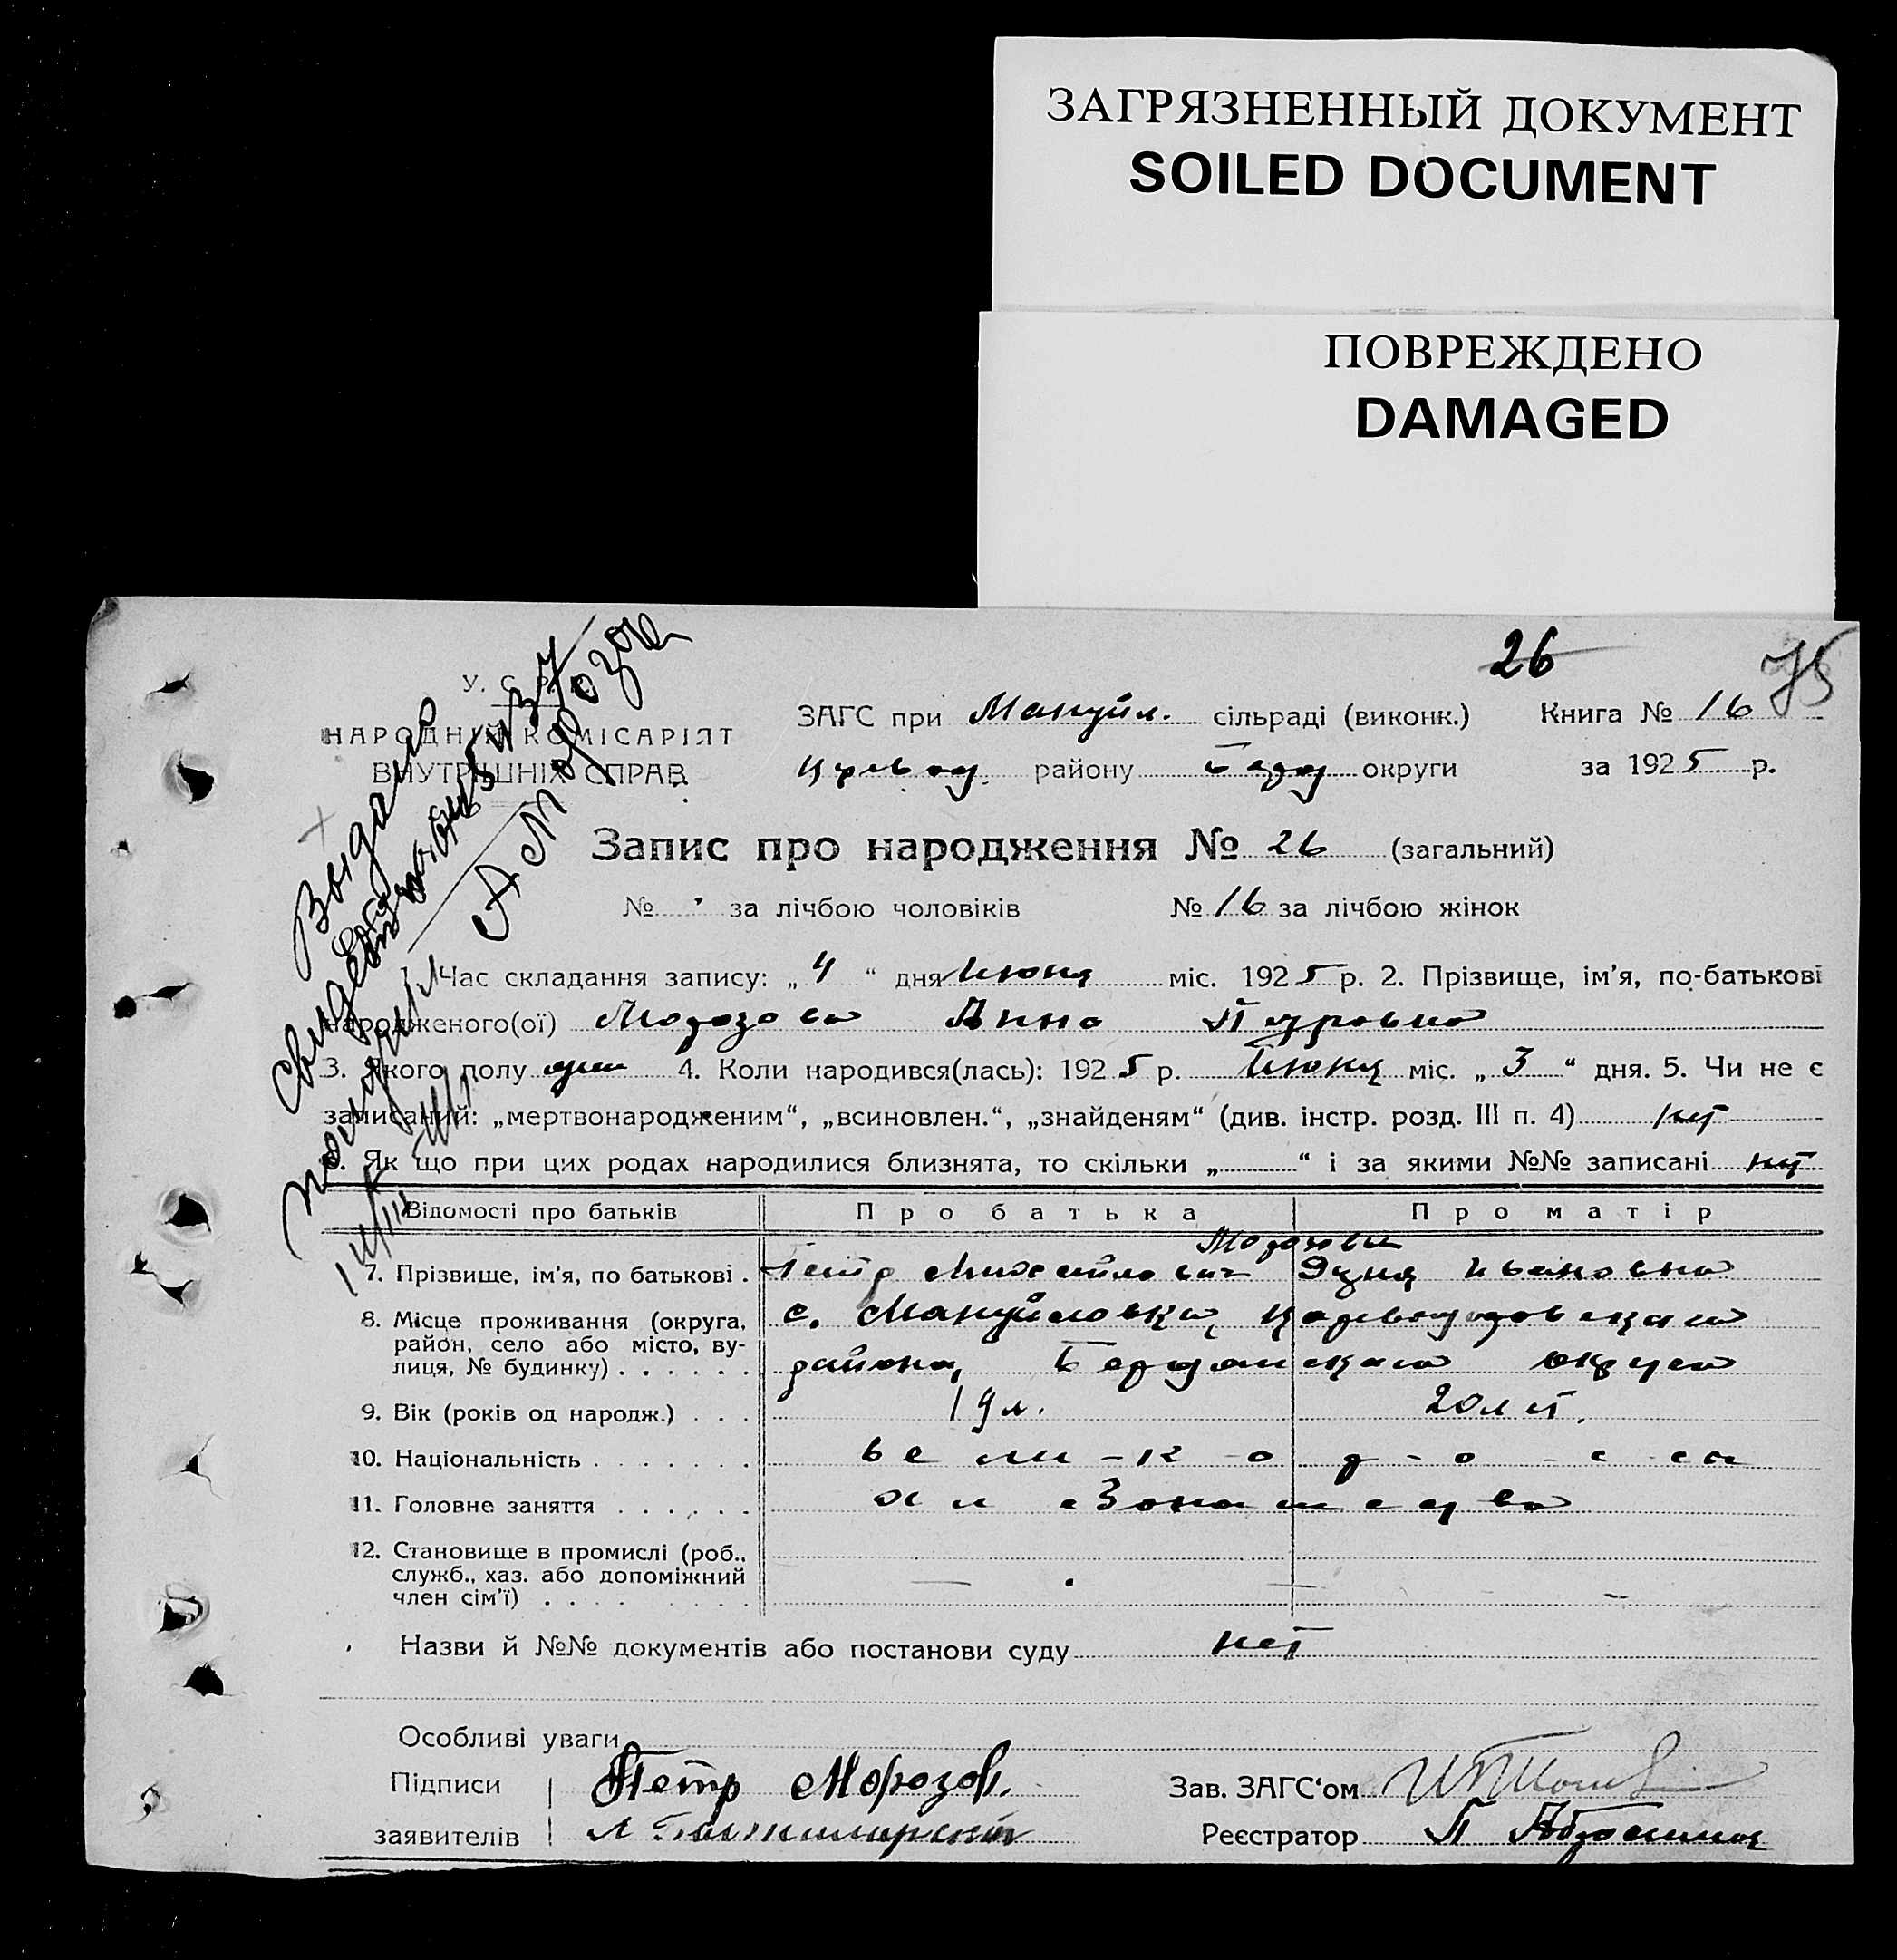 ЗАГРЯЗНЕННЫЙ ДОКУМЕНТ
SOILED DOCUMENT
ПОВРЕЖДЕНО
DAMAGED
26 75
У. С. Р. Р.
НАРОДНІЙ КОМІСАРІЯТ
ВНУТРІШНІХ СПРАВ
ЗАГС при Мануйл. сільраді (виконк.) Книга № 16
району Берд округи за 1925 р.
Выдано
свидетельство
А Морозова
получил
Запис про народження № 26 (загальний)
№ за лічбою чоловіків № 16 за лічбою жінок
1. Час складання запису: „ 4 “ дня Июня міс. 1925 р. 2. Прізвище, ім'я, по-батькові
народженого(ої) Морозова Анна Петровна
3. Якого полу 4. Коли народився(лась): 1925 р. Июня міс. „ 3 “ дня. 5. Чи не є
записаний: „мертвонародженим“, „всиновлен.“, „знайденям“ (див. інстр. розд. III п. 4) нет
6. Як що при цих родах народилися близнята, то скільки „ “ і за якими №№ записані нет
Відомості про батьків Про батька Про матір
Морозовы
7. Прізвище, ім'я, по батькові . Петр Михайлович Ивановна
8. Місце проживання (округа, район, село або місто, вулиця, № будинку) . . . . . . с. Мануйловки
района, Бердянскаго округа
9. Вік (років од народж.) . . . 19 л. 20 лет.
10. Національність . . . . . . . вели-к-о р-о-с-сы
11. Головне заняття . . . . . .
12. Становище в промислі (роб., служб., хаз. або допоміжний член сім'ї) . . . . — —
Назви й №№ документів або постанови суду нет
Особливі уваги
Підписи Петр Морозов. Зав. ЗАГС'ом
заявителів Реєстратор П Абросимов